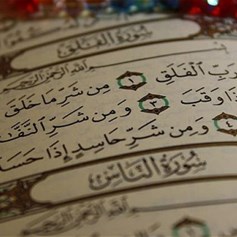 سُورَةُ الفَلَقِ
بِسْمِ اللَّهِ الرَّحْمَٰنِ الرَّحِيمِ
رَبِّ الْفَلَقِ ١ مِن شَرِّ مَا خَلَقَ
ذَا وَقَبَ ٣ وَمِن شَرِّ النَّفَّ
٤ وَمِن شَرِّ حَاسِدٍ إِذَا حَسَدَ
سُورَةُ النَّاسِ
بِسْمِ اللَّهِ الرَّحْمَٰنِ